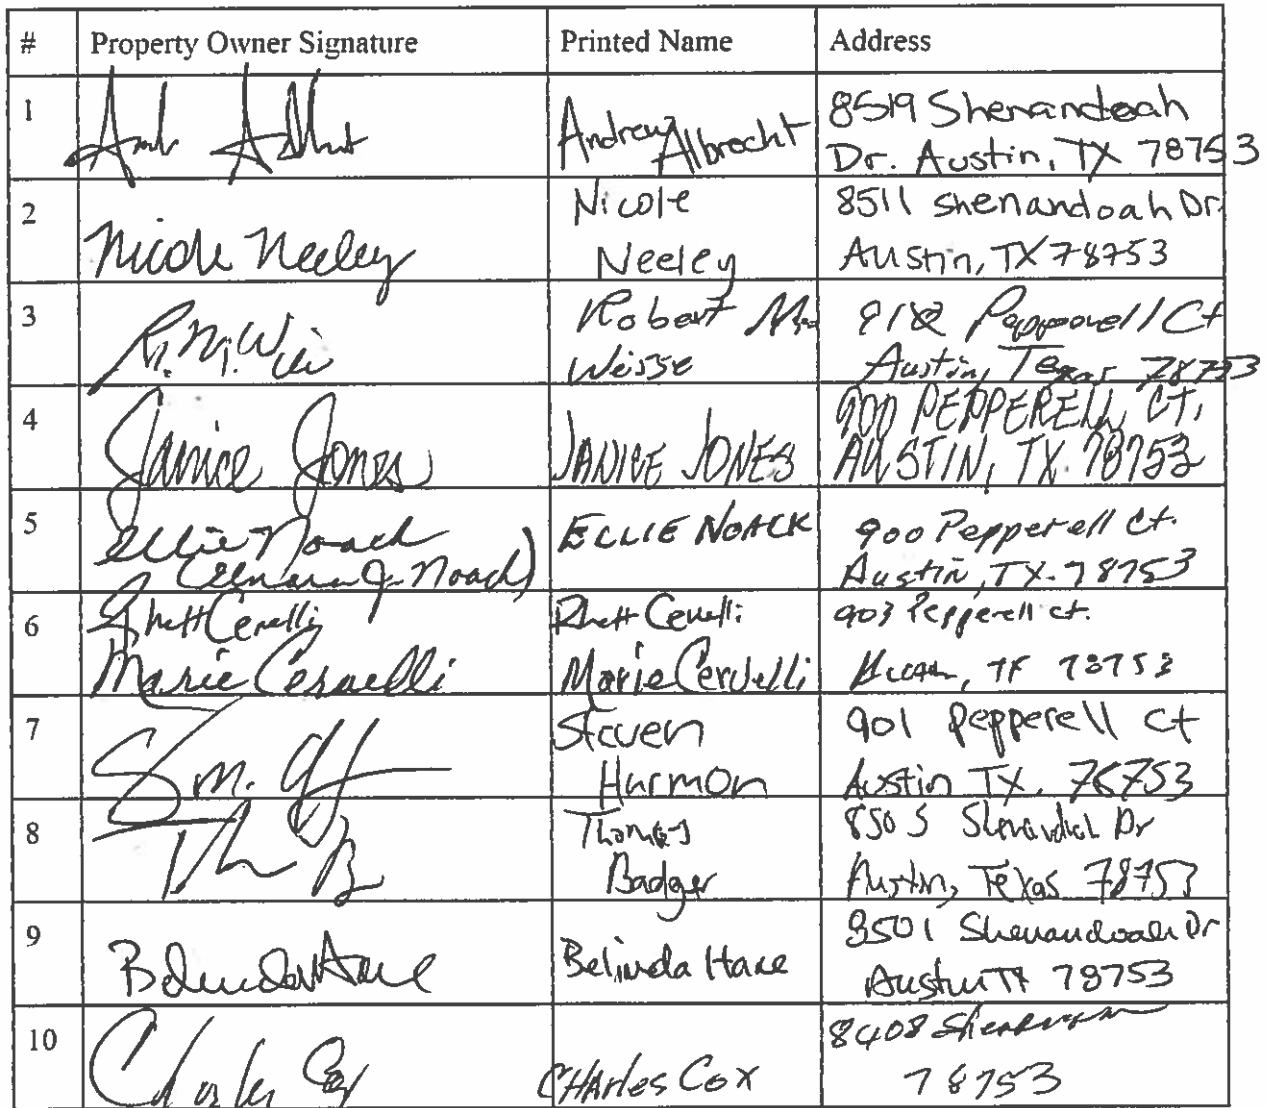 # Property Owner Signature Printed Name Address
1 Andrew Albrecht 8519 Shenandoah
Dr. Austin, TX 78753
2 Nicole Neeley Nicole
Neeley 8511 Shenandoah Dr.
Austin, TX 78753
3 Robert
Weisse Pepperell Ct
Austin, Texas 78753
4 Janice Jones JANICE JONES 900 PEPPERELL CT,
AUSTIN, TX 78753
5 Ellie Noack
ELLIE NOACK 900 Pepperell Ct.
Austin, TX. 78753
6 Rhett Cervelli Rhett Cervelli 903 Pepperell ct.
Marie Cervelli Marie Cervelli 78753
7 Steven
Harmon 901 Pepperell Ct
Austin TX. 78753
8 Thomas
Badger 8505 Dr
Austin, Texas 78753
9 Belinda Hare Belinda Hare 8501 Shenandoah Dr
Austin TX 78753
10 Charles Cox CHArles Cox 8408
78753